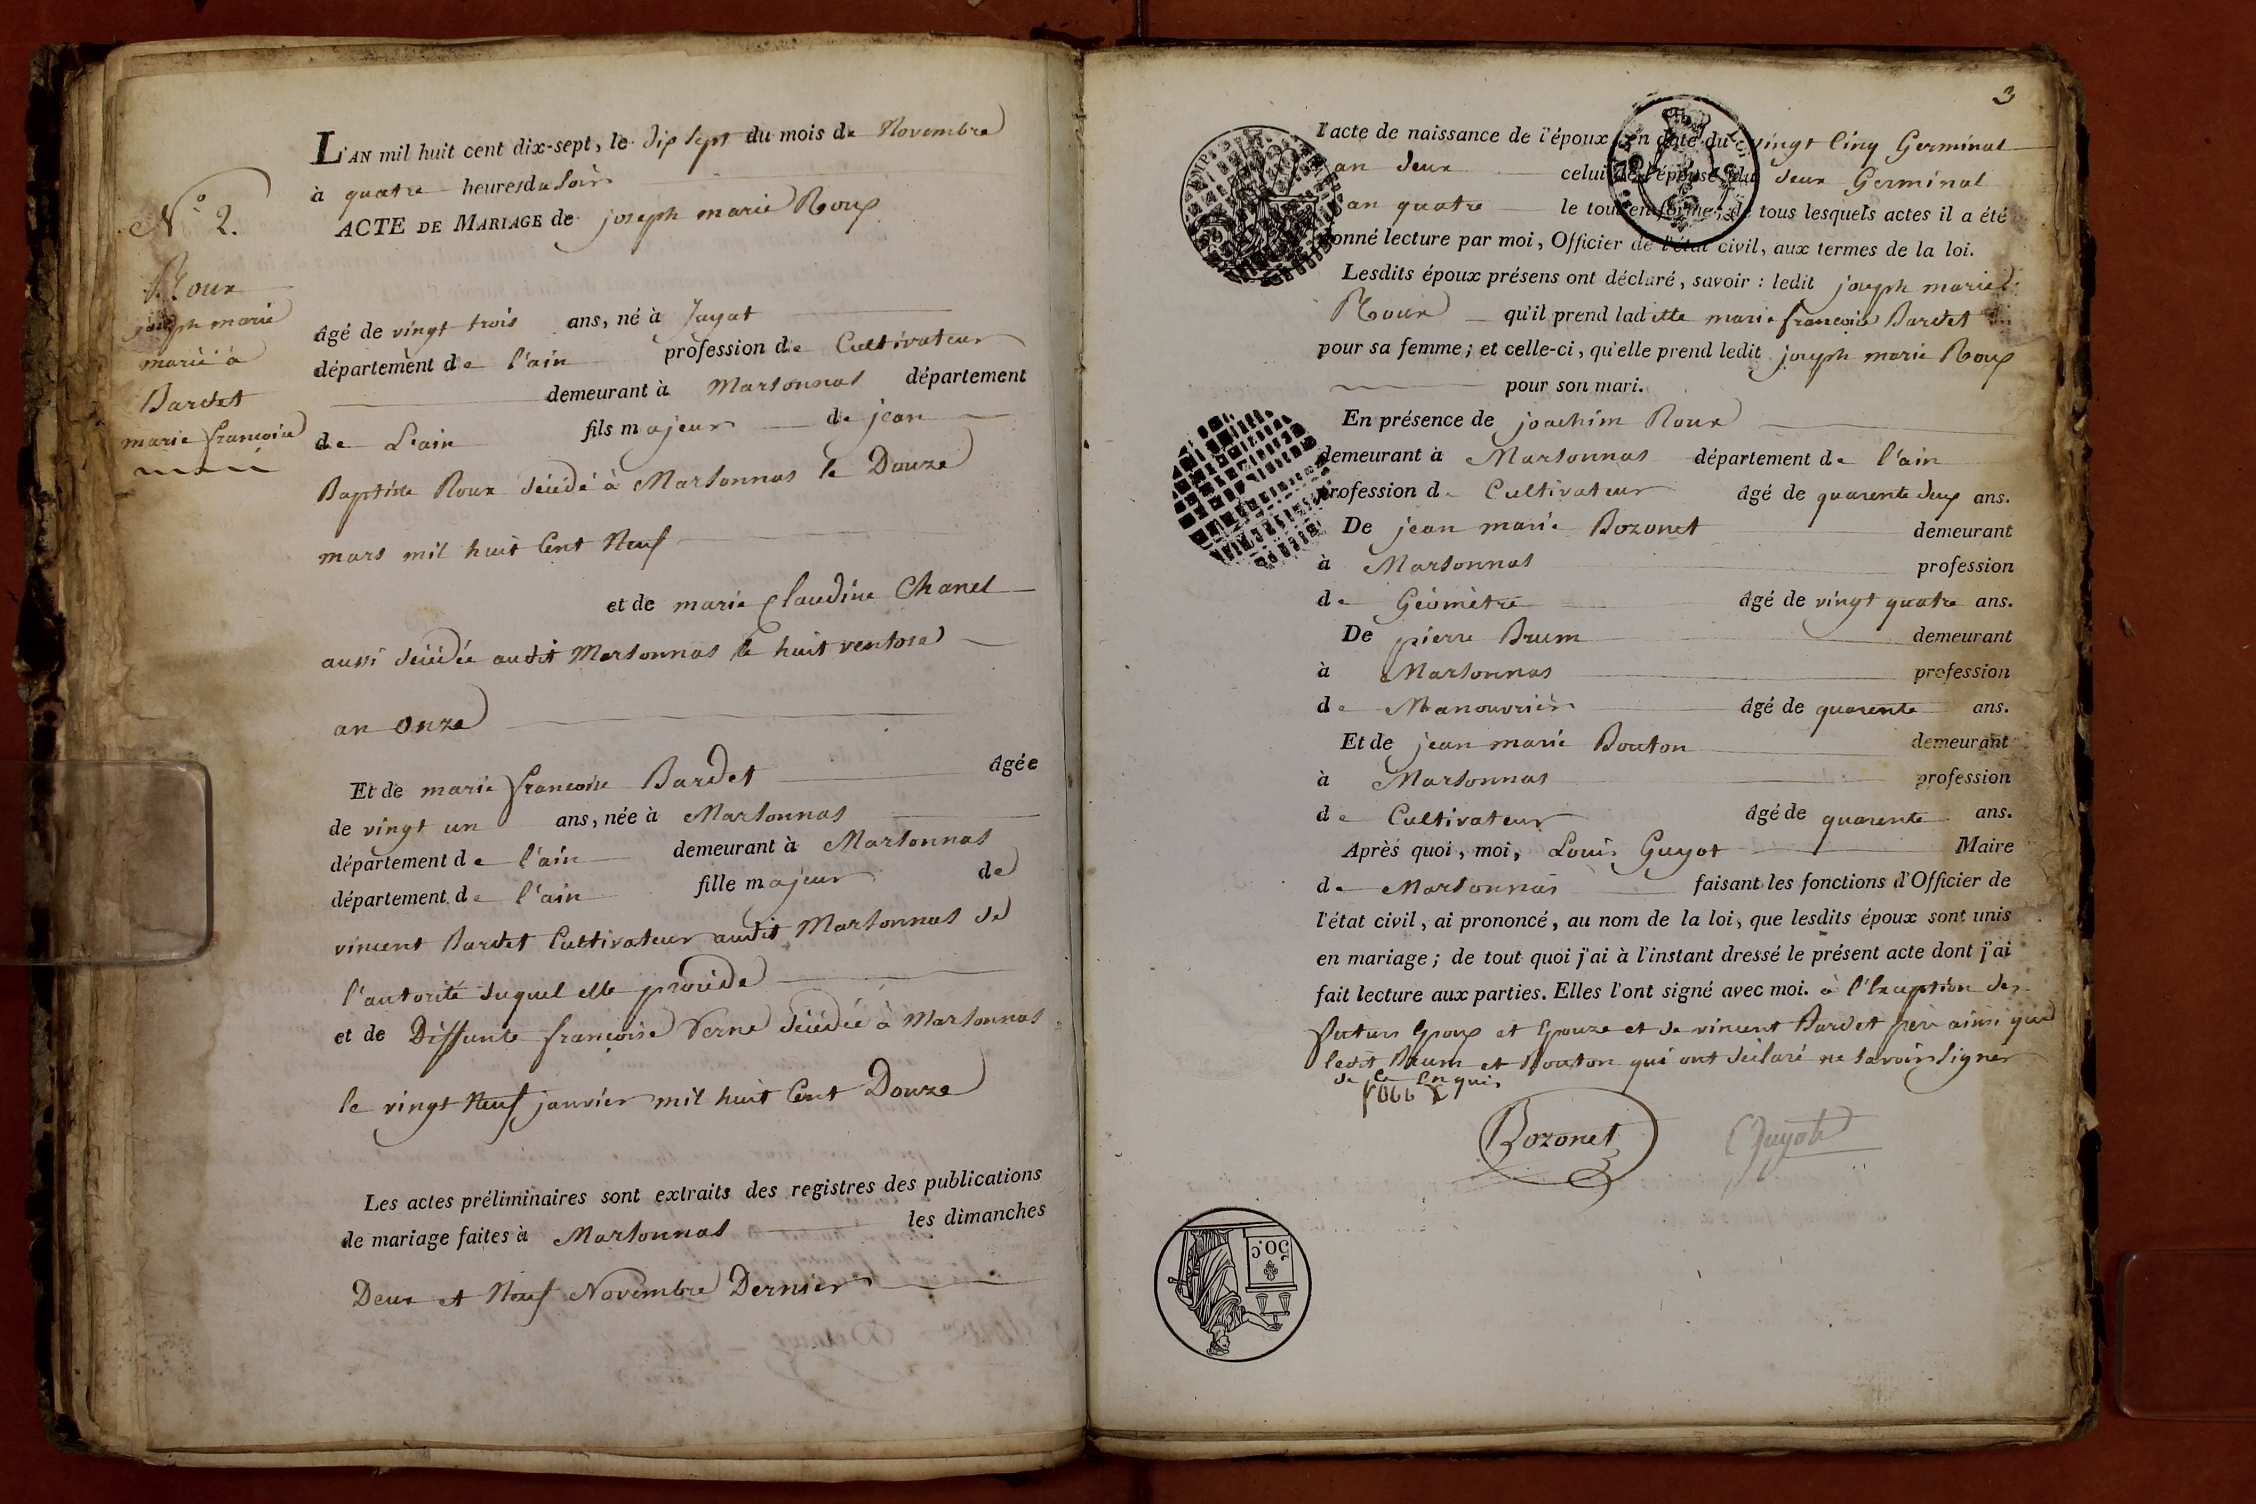 L'AN mil huit cent dix-sept, le dix sept du mois de Novembre
à quatre heures du soir
ACTE DE MARIAGE de joseph marie Roux
N.° 2.
Roux
joseph marie
marié à
Bardet
marie francoise
âgé de vingt trois ans, né à Jayat
département de l'ain profession de Cultivateur
demeurant à Marsonnas département
de L'ain fils majeur de jean
Baptiste Roux décédé à Marsonnas le Douze
mars mil huit Cent Neuf
et de marie Claudine Chanel
aussi décédée audit Marsonnas le huit ventose
an onze
Et de marie francoise Bardet âgée
de vingt un ans, née à Marsonnas
département de l'ain demeurant à Marsonnas
département de l'ain fille majeur de
vincent Bardet Cultivateur audit Marsonnas de
l'autorité duquel elle procède
et de Deffunte françoise Verne décédée à Marsonnas
le vingt Neuf janvier mil huit Cent Douze
Les actes préliminaires sont extraits des registres des publications
de mariage faites à Marsonnas les dimanches
Deux et Neuf Novembre Dernier
3
l'acte de naissance de l'époux en date du vingt Cinq Germinal
an deux celui de l'épouse du deux Germinal
an quatre le tout en forme; de tous lesquels actes il a été
donné lecture par moi, Officier de l'état civil, aux termes de la loi.
Lesdits époux présens ont déclaré, savoir : ledit joseph marie
Roux qu'il prend ladite marie francoise Bardet
pour sa femme; et celle-ci, qu'elle prend ledit joseph marie Roux
pour son mari.
En présence de joachim Roux
demeurant à Marsonnas département de l'ain
profession de Cultivateur âgé de quarente deux ans.
De jean marie Bozonet demeurant
à Marsonnas profession
de Géomètre âgé de vingt quatre ans.
De pierre Brum demeurant
à Marsonnas profession
de Manouvrier âgé de quarente ans.
Et de jean marie Bouton demeurant
à Marsonnas profession
de Cultivateur âgé de quarente ans.
Après quoi, moi, Louis Guyot Maire
de Marsonnas faisant les fonctions d'Officier de
l'état civil, ai prononcé, au nom de la loi, que lesdits époux sont unis
en mariage; de tout quoi j'ai à l'instant dressé le présent acte dont j'ai
fait lecture aux parties. Elles l'ont signé avec moi. à l'Exception des
futurs Epoux et Epouze et de vincent Bardet père ainsi que
ledit Brum et Bouton qui ont déclaré ne savoir signer
de ce Enquis
Bozonet Guyot
50 C.